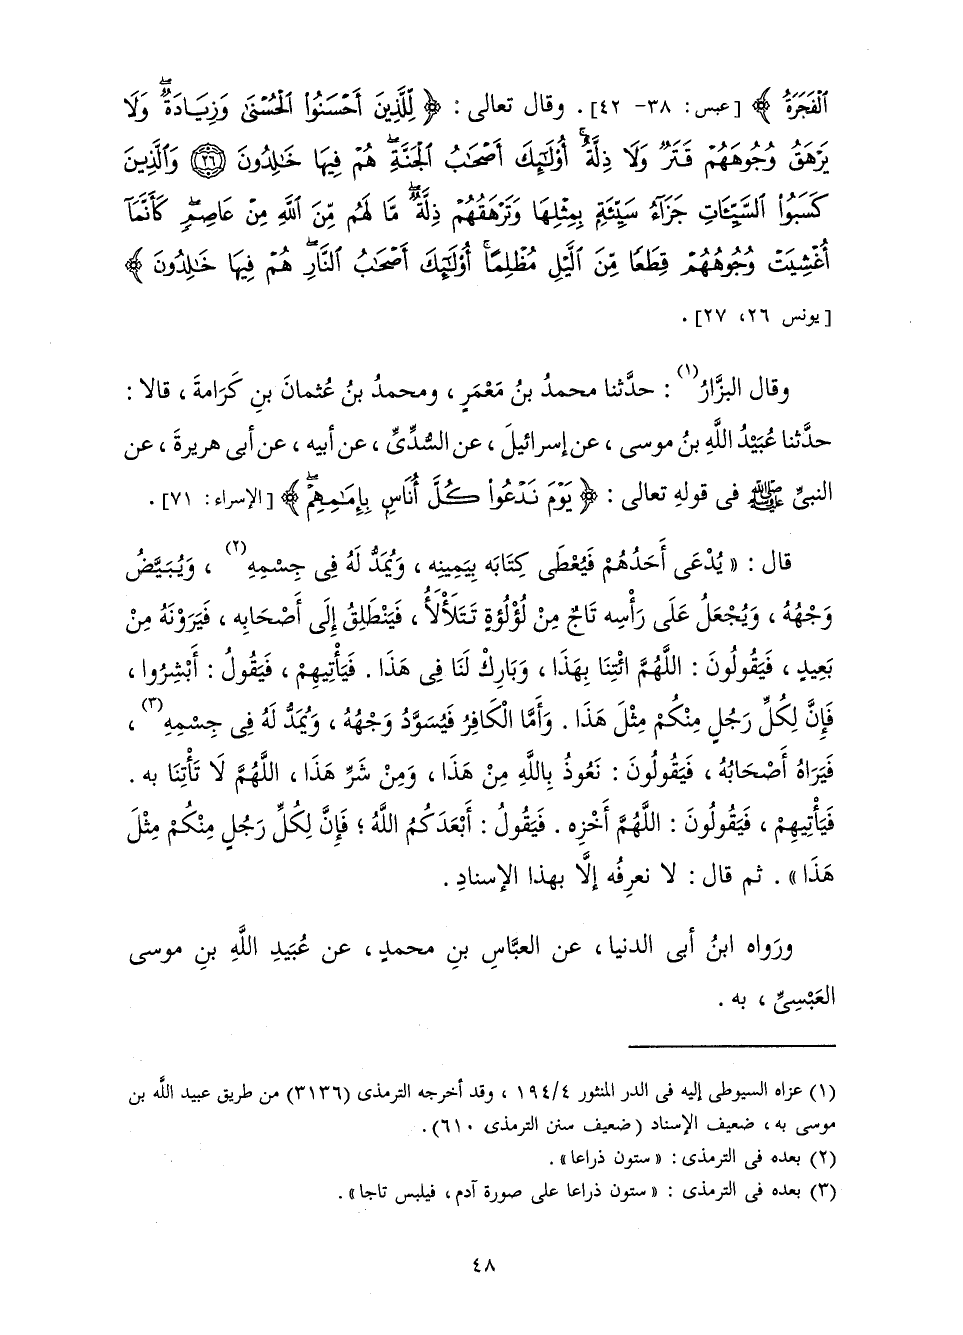 ٱلْفَجَرَةُ ﴾ [عبس: ٣٨- ٤٢]. وقال تعالى: ﴿ لِّلَّذِينَ أَحْسَنُوا۟ ٱلْحُسْنَىٰ وَزِيَادَةٌ ۖ وَلَا
يَرْهَقُ وُجُوهَهُمْ قَتَرٌ وَلَا ذِلَّةٌ ۚ أُو۟لَٰٓئِكَ أَصْحَٰبُ ٱلْجَنَّةِ ۖ هُمْ فِيهَا خَٰلِدُونَ ﴿٢٦﴾ وَٱلَّذِينَ
كَسَبُوا۟ ٱلسَّيِّـَٔاتِ جَزَآءُ سَيِّئَةٍۭ بِمِثْلِهَا وَتَرْهَقُهُمْ ذِلَّةٌ ۖ مَّا لَهُم مِّنَ ٱللَّهِ مِنْ عَاصِمٍ ۖ كَأَنَّمَآ
أُغْشِيَتْ وُجُوهُهُمْ قِطَعًا مِّنَ ٱلَّيْلِ مُظْلِمًا ۚ أُو۟لَٰٓئِكَ أَصْحَٰبُ ٱلنَّارِ ۖ هُمْ فِيهَا خَٰلِدُونَ ﴾
[يونس ٢٦، ٢٧].
وقال البزَّارُ(١): حدَّثنا محمدُ بنُ مَعْمَرٍ، ومحمدُ بنُ عُثمانَ بنِ كَرَامةَ، قالا:
حدَّثنا عُبَيْدُ اللَّهِ بنُ موسى، عن إسرائيلَ، عن السُّدِّىِّ، عن أبيه، عن أبى هريرةَ، عن
النبىِّ ﷺ فى قولِه تعالى: ﴿ يَوْمَ نَدْعُوا۟ كُلَّ أُنَاسٍۭ بِإِمَٰمِهِمْ ۖ ﴾ [الإسراء: ٧١].
قال: « يُدْعَى أَحَدُهُمْ فَيُعْطَى كِتَابَه بِيَمِينِه، وَيُمَدُّ لَهُ فِى جِسْمِهِ(٢)، وَيُبَيَّضُ
وَجْهُهُ، وَيُجْعَلُ عَلَى رَأْسِه تَاجٌ مِنْ لُؤْلُؤةٍ تَتَلَأْلَأُ، فَيَنْطَلِقُ إِلَى أَصْحَابِه، فَيَرَوْنَهُ مِنْ
بَعِيدٍ، فَيَقُولُونَ: اللَّهُمَّ ائْتِنَا بِهَذَا، وَبَارِكْ لَنَا فِى هَذَا. فَيَأْتِيهِمْ، فَيَقُولُ: أَبْشِرُوا،
فَإِنَّ لِكُلِّ رَجُلٍ مِنْكُمْ مِثْلَ هَذَا. وَأَمَّا الْكَافِرُ فَيُسَوَّدُ وَجْهُهُ، وَيُمَدُّ لَهُ فِى جِسْمِهِ(٣)،
فَيَرَاهُ أَصْحَابُهُ، فَيَقُولُونَ: نَعُوذُ بِاللَّهِ مِنْ هَذَا، وَمِنْ شَرِّ هَذَا، اللَّهُمَّ لَا تَأْتِنَا به.
فَيَأْتِيهِمْ، فَيَقُولُونَ: اللَّهُمَّ أَخْزِه. فَيَقُولُ: أَبْعَدَكُمُ اللَّهُ؛ فَإِنَّ لِكُلِّ رَجُلٍ مِنْكُمْ مِثْلَ
هَذَا ». ثم قال: لا نعرِفُه إلَّا بهذا الإسنادِ.
ورَواه ابنُ أبى الدنيا، عن العبَّاسِ بنِ محمدٍ، عن عُبَيدِ اللَّهِ بنِ موسى
العَبْسِىِّ، به.
(١) عزاه السيوطى إليه فى الدر المنثور ٤/ ١٩٤، وقد أخرجه الترمذى (٣١٣٦) من طريق عبيد اللَّه بن
موسى به، ضعيف الإسناد (ضعيف سنن الترمذى ٦١٠).
(٢) بعده فى الترمذى: « ستون ذراعا ».
(٣) بعده فى الترمذى: « ستون ذراعا على صورة آدم، فيلبس تاجا ».
٤٨